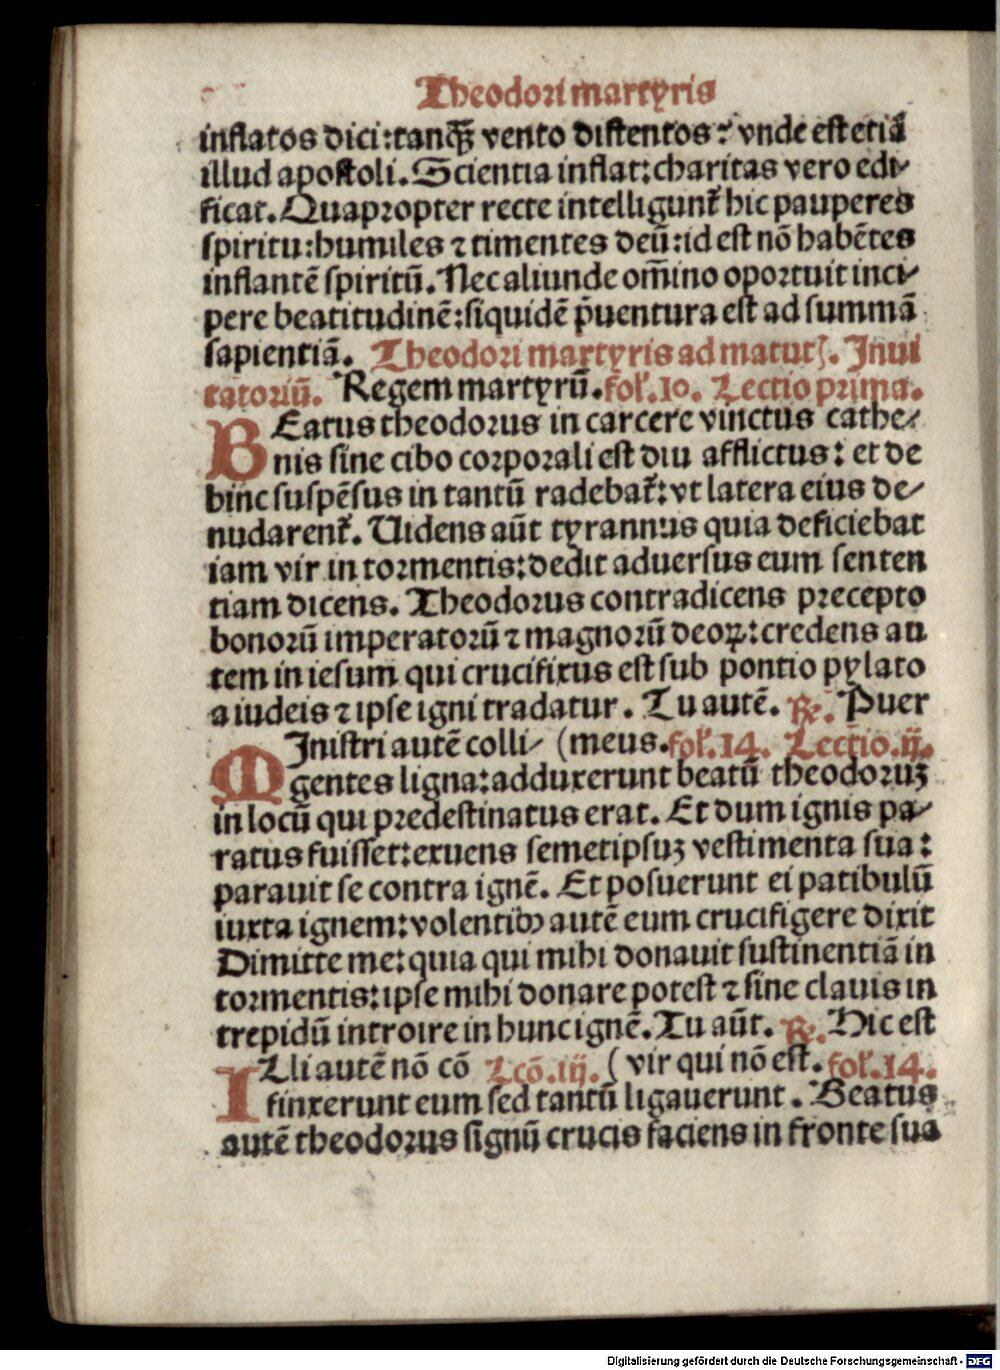 Theodori martyris
inflatos dici:tanqꝫ vento distentos: vnde est etiā
illud apostoli. Scientia inflat: charitas vero edi-
ficat. Quapropter recte intelligunt᷑ hic pauperes
spiritu: humiles ⁊ timentes deū: id est nō habētes
inflantē spiritū. Nec aliunde om̄ino oportuit inci-
pere beatitudinē: siquidē p̄uentura est ad summā
sapientiā. Theodori martyris ad matutꝭ. Inui
tatoriū. Regem martyrū. fol. 10. Lectio prima.
BEatus theodorus in carcere vinctus cathe-
nis sine cibo corporali est diu afflictus: et de
hinc suspēsus in tantū radebat᷑: vt latera eius de-
nudarent᷑. Uidens aūt tyrannus quia deficiebat
iam vir in tormentis: dedit aduersus eum senten
tiam dicens. Theodorus contradicens precepto
bonorū imperatorū ⁊ magnorū deoꝝ: credens au
tem in iesum qui crucifixus est sub pontio pylato
a iudeis ⁊ ipse igni tradatur. Tu autē. ℟. Puer
MInistri autē colli- (meus. fol. 14. Lectio. ij.
gentes ligna: adduxerunt beatū theodoruꝫ
in locū qui predestinatus erat. Et dum ignis pa-
ratus fuisset: exuens semetipsuꝫ vestimenta sua:
parauit se contra ignē. Et posuerunt ei patibulū
iuxta ignem: volentibꝰ autē eum crucifigere dixit
Dimitte me: quia qui mihi donauit sustinentiā in
tormentis: ipse mihi donare potest ⁊ sine clauis in
trepidū introire in hunc ignē. Tu aūt. ℟. Hic est
ILli autē nō cō Lcō. iij. (vir qui nō est. fol. 14.
finxerunt eum sed tantū ligauerunt. Beatus
autē theodorus signū crucis faciens in fronte sua
Digitalisierung gefördert durch die Deutsche Forschungsgemeinschaft - DFG